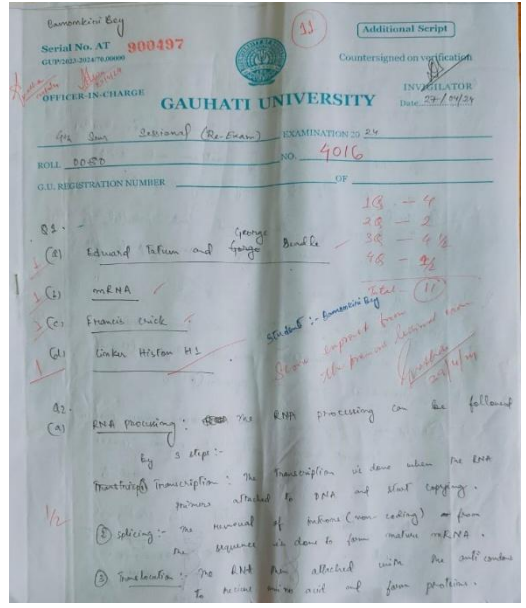 Bamonkini Bey
11
Additional Script
Serial No. AT 900497
GUP/2023-2024/70,00000
Countersigned on verification
OFFICER-IN-CHARGE
INVIGILATOR
Date 27/04/24
GAUHATI UNIVERSITY
4th Sem Sessional (Re-Exam) EXAMINATION 20 24
ROLL 00500 NO. 4016
G.U. REGISTRATION NUMBER OF
1Q. - 4
2Q - 2
3Q - 4 1/2
4Q - 1/2
Total - 11
Q1.
George
(a) Edward Tatum and Gorge Beadle
1 (b) mRNA
1 (c) Francis Crick
1 (d) Linker Histon H1
Student :- Bamonkini Bey
Score improved from
the previous sessional exam
29/4/24
Q2.
(a) RNA processing : The RNA processing can be followed
by 3 steps :-
① Transcription : The transcription is done when the RNA
primers attached to DNA and start copying.
1/2
② Splicing :- The removal of introns (non-coding) from
the sequence is done to form mature mRNA.
③ Translocation :- The RNA then attached with the anti codons
to amino acid and form proteins.